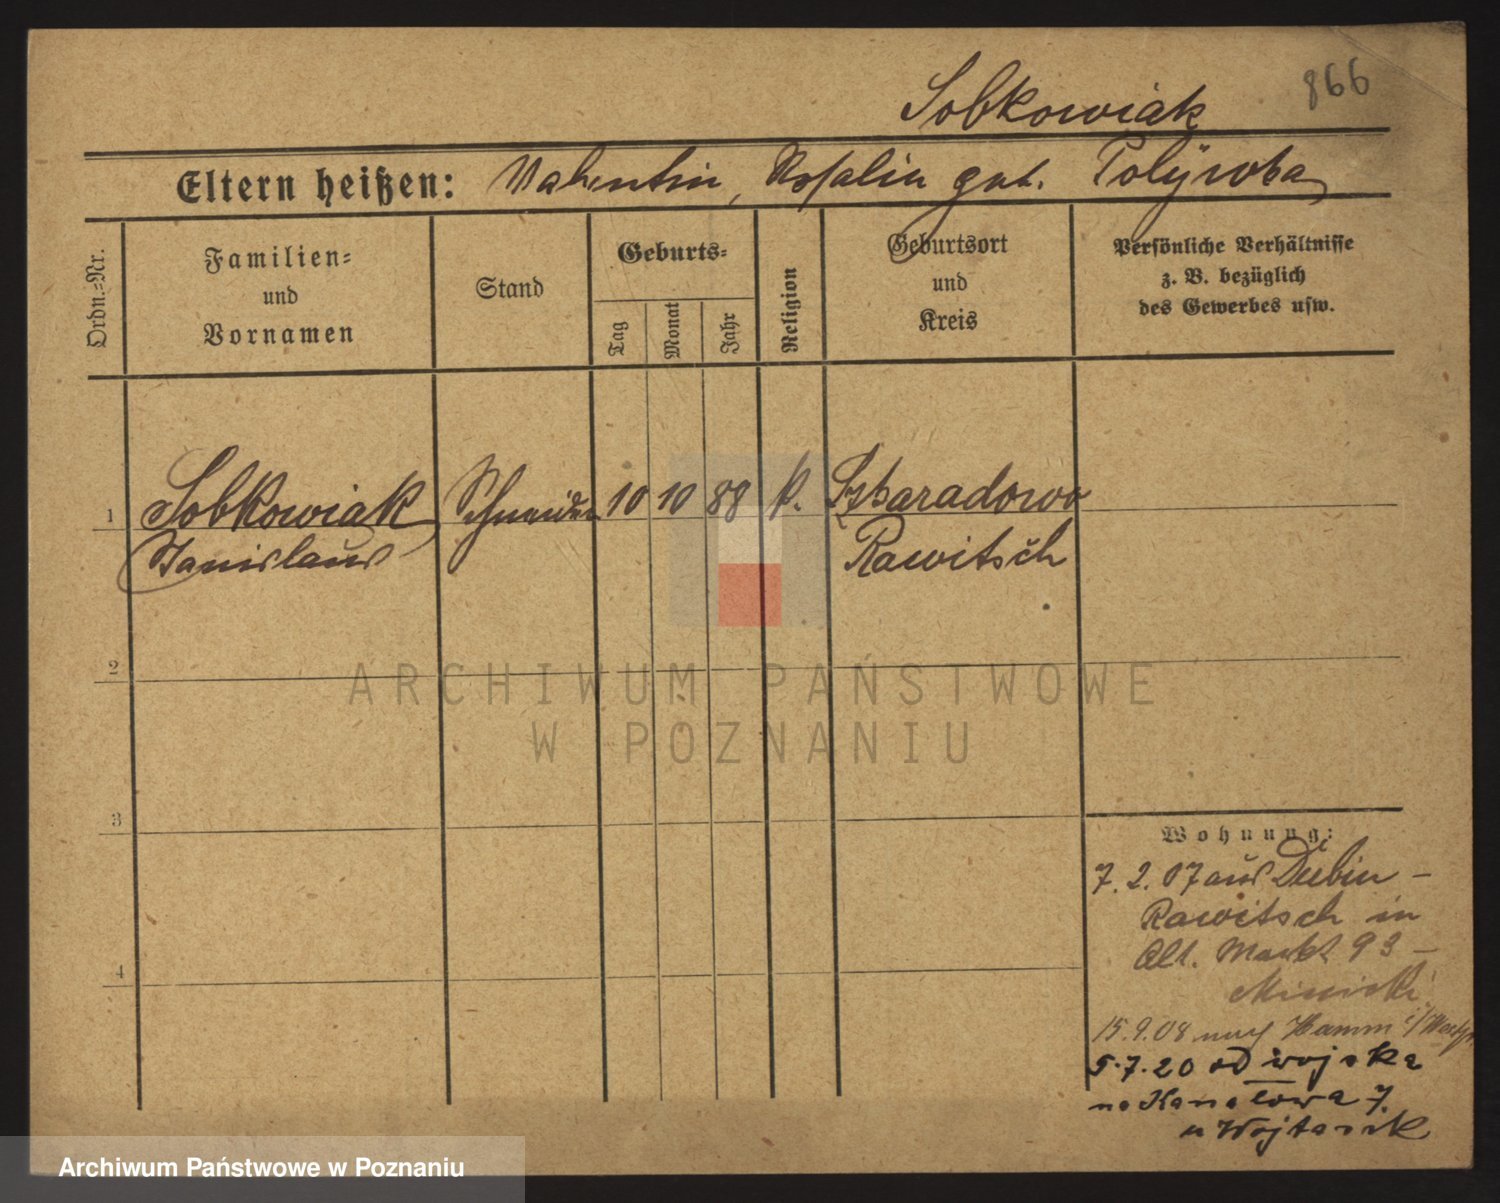 866
Sobkowiak
Eltern heißen: Valentin, Rosalia geb.
Ordn.=Nr.
Familien=
und
Vornamen
Stand
Geburts=
Tag
Monat
Jahr
Religion
Geburtsort
und
Kreis
Persönliche Verhältnisse
z. B. bezüglich
des Gewerbes usw.
1
Sobkowiak Schneider 10 10 88 k. Szkaradowo
Stanislaus Rawitsch
2
3
4
Wohnung:
7. 2. 07 aus Dubin –
Rawitsch in
Alt. Markt 93 –
15.9.08 nach Hamm i/Westf.
5.7.20 od wojska
na Kanałowa 7.
u Wojtasik
ARCHIWUM PAŃSTWOWE
W POZNANIU
Archiwum Państwowe w Poznaniu